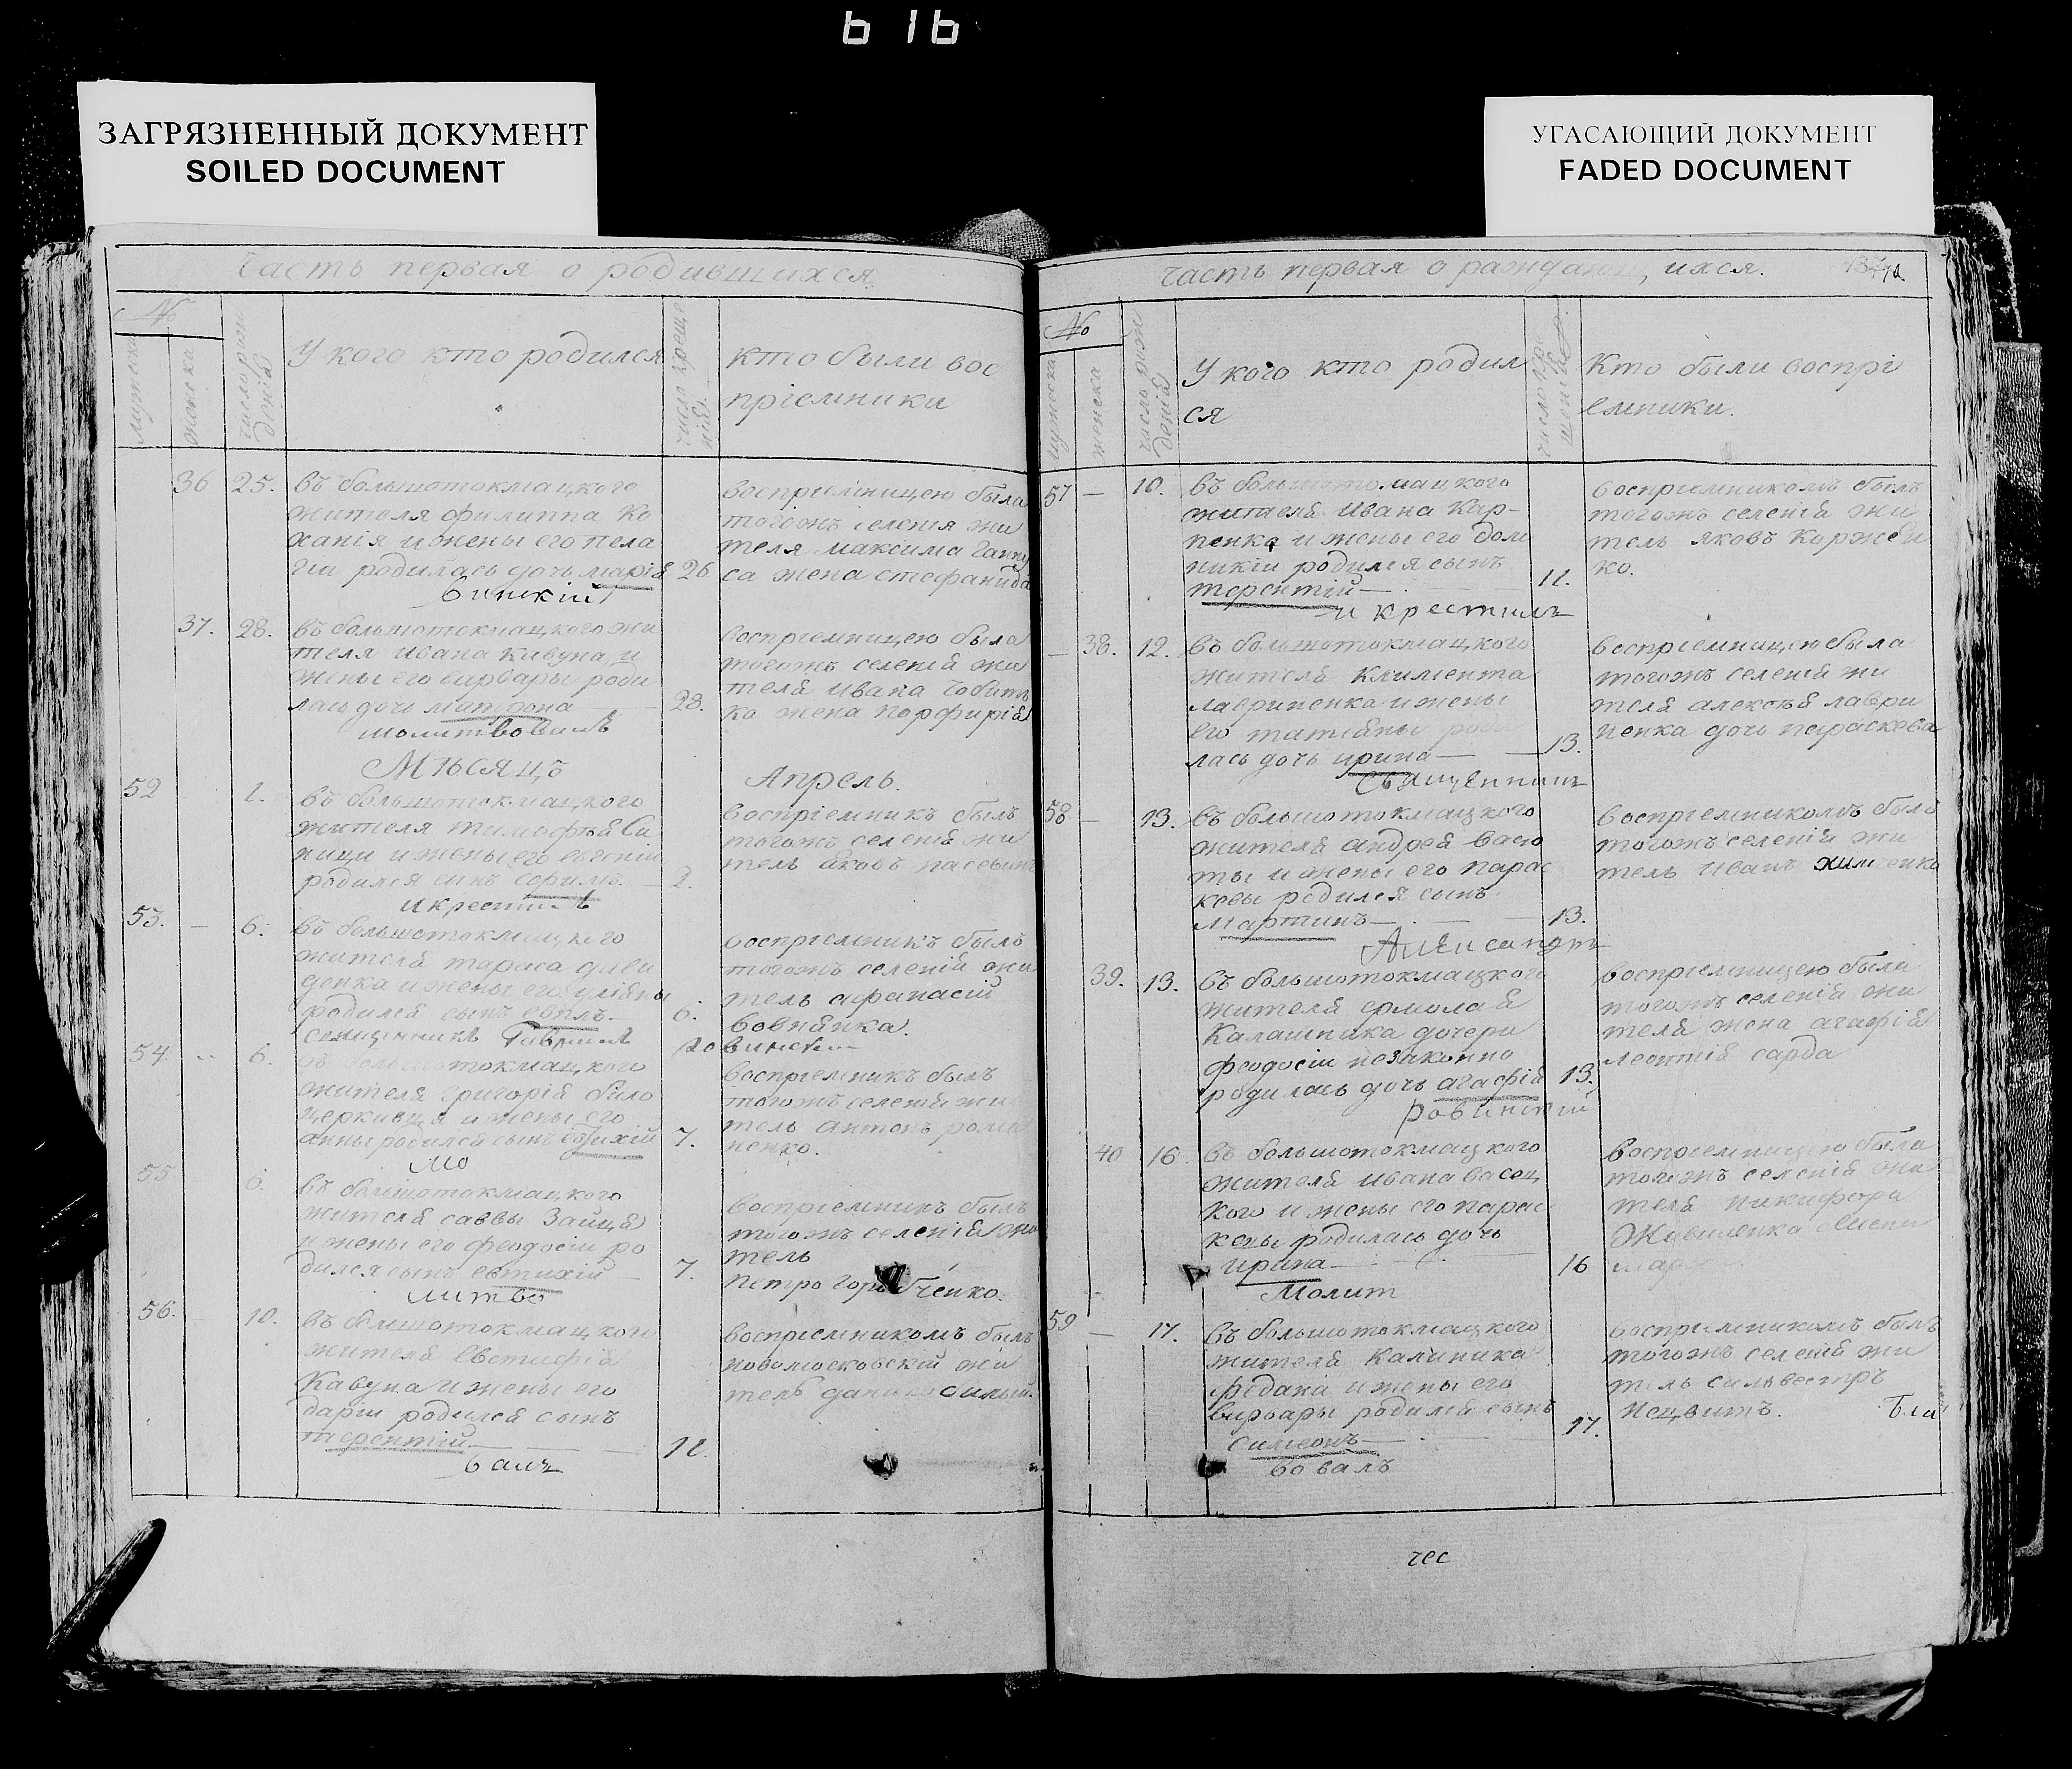 616
ЗАГРЯЗНЕННЫЙ ДОКУМЕНТ
SOILED DOCUMENT
УГАСАЮЩИЙ ДОКУМЕНТ
FADED DOCUMENT
Часть первая о родившихся
№
мужеска
женска
число рож
денія
У кого кто родился
число креще
нія
кто были вос
пріемники
36 25. въ большотокмацкого
жителя филиппа ко
ханія и жены его пела
гіи родилась дочь марія 26
воспріемницею была
тогожъ селенія жи
теля максима
са жена стефанида
37. 28. въ большотокмацкого жи
теля ивана кавуна и
жены его варвары роди
лась дочь матрона 28.
молитвовалъ
воспріемницею была
тогожъ селенія жи
теля ивана чобит
ко жена порфирія
Мѣсяцъ Апрель.
52 1. въ большотокмацкого
жителя тимофѣя Си
ницы и жены его евгеніи
родился сынъ 2.
и крестилъ
воспріемникъ былъ
тогожъ селенія жи
тель яковъ
53. — 6. въ большотокмацкого
жителя тараса диви
денка и жены его уліяны
родился сынъ евплъ 6.
священникъ Гавріилъ ровинскій
воспріемникъ былъ
тогожъ селенія жи
тель афанасій
вовнянка.
54 6. въ большотокмацкого
жителя григорія било
церкивця и жены его
анны родился сынъ евтихій 7.
мо
воспріемникъ былъ
тогожъ селенія жи
тель антонъ рома
ненко.
55 6. въ большотокмацкого
жителя саввы Зайця
и жены его феодосіи ро
дился сынъ евтихій 7.
литво
воспріемникъ былъ
тогожъ селенія жи
тель
петро ченко.
56. 10. въ большотокмацкого
жителя евстафія
Кавуна и жены его
даріи родился сынъ
терентій 11.
валъ
воспріемникомъ былъ
новомосковскій жи
тель
часть первая о раждающихся.
№
мужеска
женска
число рож
денія
У кого кто родил
ся
число кре
щенія
Кто были воспрі
емники.
57 — 10. въ большотокмацкого
жителя ивана Кар-
пенка и жены его дом
никіи родился сынъ
терентій 11.
и крестилъ
воспріемникомъ былъ
тогожъ селенія жи
тель яковъ Коржей
ко.
— 38. 12. въ большотокмацкого
жителя климента
лавриненка и жены
его татіяны роди
лась дочь ирина 13.
священникъ
воспріемницею была
тогожъ селенія жи
теля алексѣя лаври
ненка дочь параскева
58 — 13. въ большотокмацкого
жителя андрея васю
ты и жены его парас
кевы родился сынъ
мартинъ 13.
Александръ
воспріемникомъ былъ
тогожъ селенія жи
тель иванъ
39. 13. въ большотокмацкого
жителя ермолая
Калашника дочери
феодосіи незаконно
родилась дочь агафія 13.
ровинскій
воспріемницею была
тогожъ селенія жи
теля жена агафія
леонтія сарда
40 16 въ большотокмацкого
жителя ивана васец
кого и жены его парас
кевы родилась дочь
ирина 16
Молит
воспріемницею была
тогожъ селенія жи
теля никифора
59 — 17. въ большотокмацкого
жителя Калиника
федана и жены его
варвары родился сынъ
симеонъ 17.
вовалъ
воспріемникомъ былъ
тогожъ селенія жи
тель сильвестръ
нецвитъ.
Бла
чес